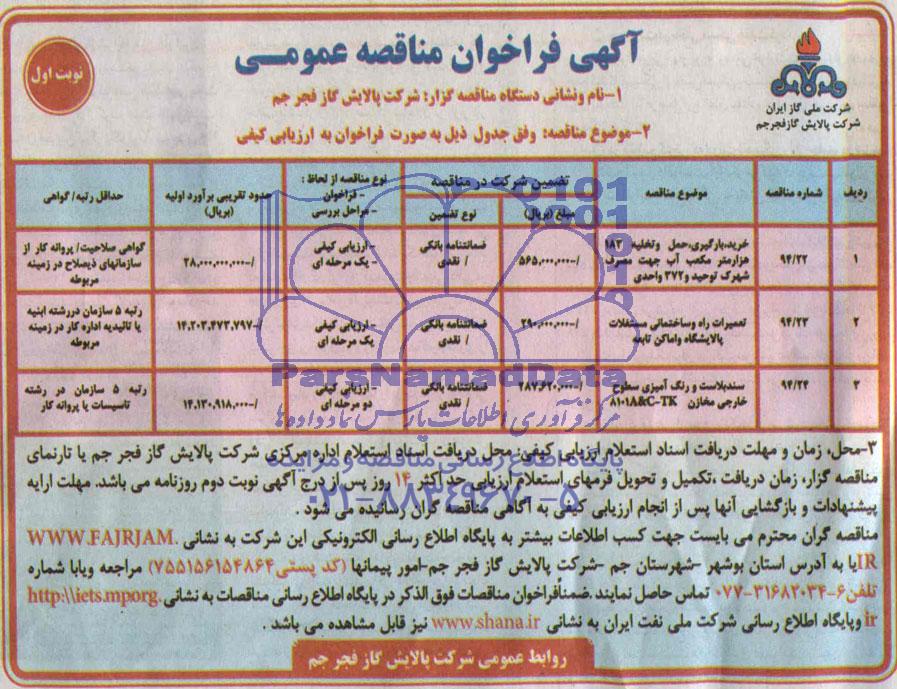 آگهی فراخوان مناقصه عمومی
نوبت اول
شرکت ملی گاز ایران
شرکت پالایش گاز فجر جم
۱-نام ونشانی دستگاه مناقصه گزار: شرکت پالایش گاز فجر جم
۲-موضوع مناقصه: وفق جدول ذیل به صورت فراخوان به ارزیابی کیفی
ردیف
شماره مناقصه
موضوع مناقصه
تضمین شرکت در مناقصه
مبلغ (بریال)
نوع تضمین
نوع مناقصه از لحاظ :
- فراخوان
- مراحل بررسی
حدود تقریبی برآورد اولیه
(بریال)
حداقل رتبه/ گواهی
۱
۹۴/۲۲
خرید،بارگیری،حمل وتخلیه ۱۸۳
هزارمتر مکعب آب جهت مصرف
شهرک توحید و۳۷۲ واحدی
۵۶۵,۰۰۰,۰۰۰/-
ضمانتنامه بانکی
/ نقدی
- ارزیابی کیفی
- یک مرحله ای
۲۸,۰۰۰,۰۰۰,۰۰۰/-
گواهی صلاحیت/ پروانه کار از
سازمانهای ذیصلاح در زمینه
مربوطه
۲
۹۴/۲۳
تعمیرات راه وساختمانی مستغلات
پالایشگاه واماکن تابعه
۲۹۰,۰۰۰,۰۰۰/-
ضمانتنامه بانکی
/ نقدی
- ارزیابی کیفی
یک مرحله ای
۱۴,۲۰۳,۴۷۳,۷۹۷/-
رتبه ۵ سازمان دررشته ابنیه
یا تائیدیه اداره کار در زمینه
مربوطه
۳
۹۴/۲۴
سندبلاست و رنگ آمیزی سطوح
خارجی مخازن ۸۱۰۱A&C-TK
۲۸۷,۶۲۰,۰۰۰/-
ضمانتنامه بانکی
/ نقدی
- ارزیابی کیفی
دو مرحله ای
۱۴,۱۳۰,۹۱۸,۰۰۰/-
رتبه ۵ سازمان در رشته
تاسیسات یا پروانه کار
ParsNamadData
مرکز فرآوری اطلاعات پارس نماد داده ها
پایگاه اطلاع رسانی مناقصه و مزایده
۰۲۱-۸۸۳۴۹۶۷۰-۵
۳-محل، زمان و مهلت دریافت اسناد استعلام ارزیابی کیفی: محل دریافت اسناد استعلام اداره مرکزی شرکت پالایش گاز فجر جم یا تارنمای
مناقصه گزار، زمان دریافت ،تکمیل و تحویل فرمهای استعلام ارزیابی حداکثر ۱۴ روز پس از درج آگهی نوبت دوم روزنامه می باشد. مهلت ارایه
پیشنهادات و بازگشایی آنها پس از انجام ارزیابی کیفی به آگاهی مناقصه گران رسانیده می شود .
مناقصه گران محترم می بایست جهت کسب اطلاعات بیشتر به پایگاه اطلاع رسانی الکترونیکی این شرکت به نشانی WWW.FAJRJAM.
IRیا به آدرس استان بوشهر -شهرستان جم -شرکت پالایش گاز فجر جم-امور پیمانها (کد پستی۷۵۵۱۵۶۱۵۴۸۶۴) مراجعه ویابا شماره
تلفن۶-۳۱۶۸۲۰۳۴-۰۷۷ تماس حاصل نمایند .ضمناًفراخوان مناقصات فوق الذکر در پایگاه اطلاع رسانی مناقصات به نشانی http:\\iets.mporg.
ir وپایگاه اطلاع رسانی شرکت ملی نفت ایران به نشانی www.shana.ir نیز قابل مشاهده می باشد .
روابط عمومی شرکت پالایش گاز فجر جم